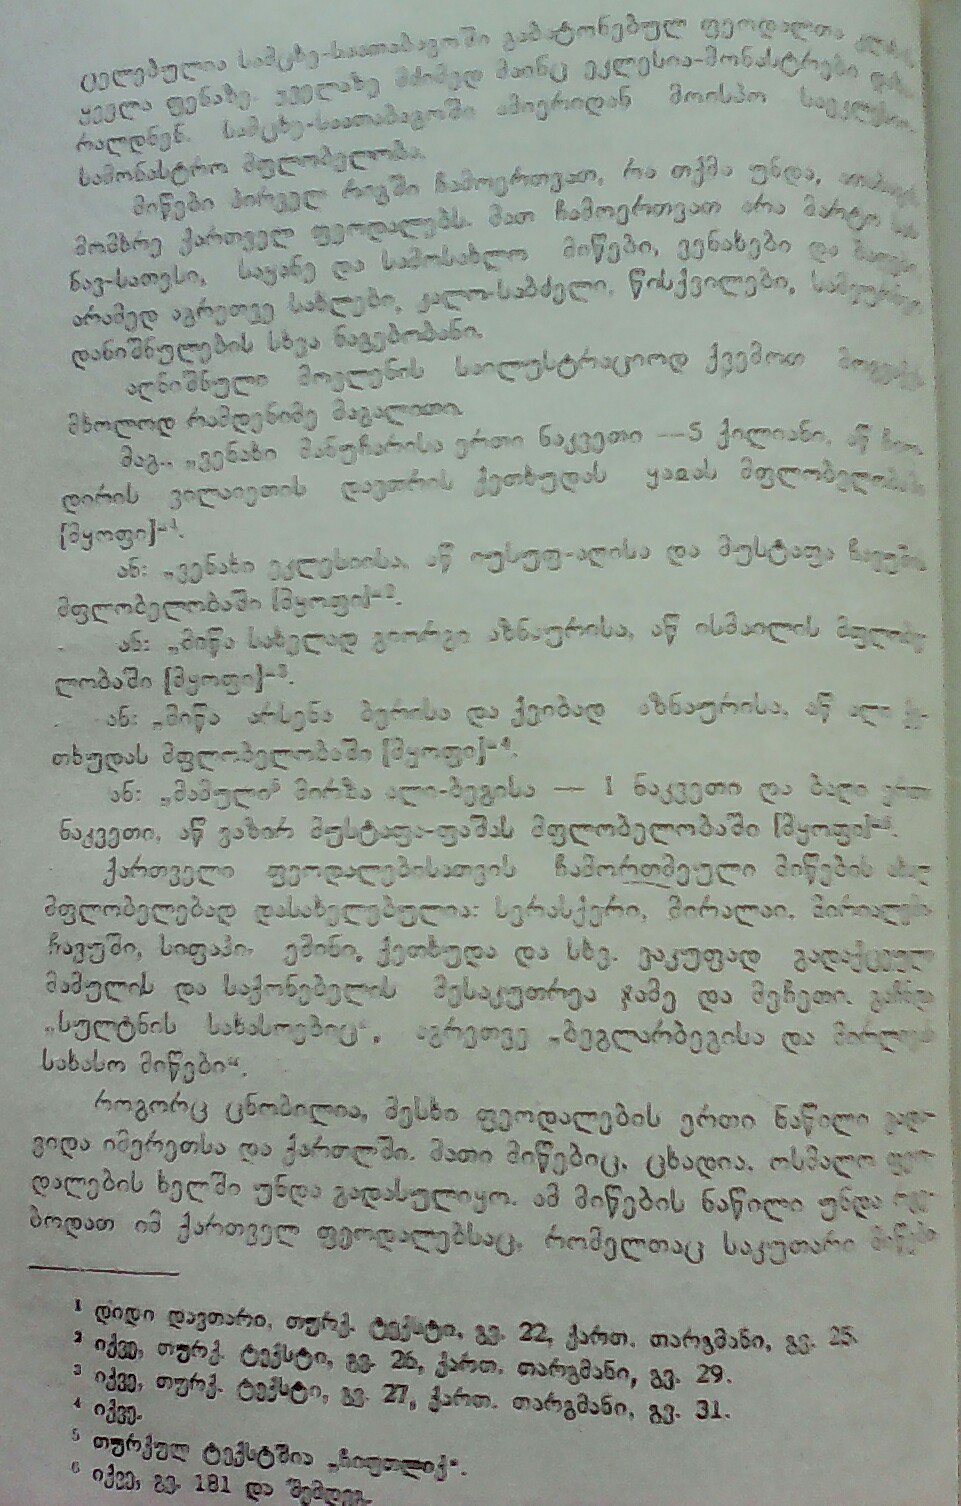 ცელებულია სამცხე-საათაბაგოში გაბატონებულ ფეოდალთა კლასის
ყველა ფენაზე. ყველაზე მძიმედ მაინც ეკლესია-მონასტრები
რალდნენ. სამცხე-საათაბაგოში ამიერიდან მოისპო საეკლესიო-
სამონასტრო მფლობელობა.
მიწები პირველ რიგში ჩამოერთვათ, რა თქმა უნდა,
მომხრე ქართველ ფეოდალებს. მათ ჩამოერთვათ არა მარტო
ნავ-სათესი, საყანე და სამოსახლო მიწები, ვენახები და ბაღები,
არამედ აგრეთვე სახლები, კალო-საბძელი, წისქვილები, სამეურნეო
დანიშნულების სხვა ნაგებობანი.
აღნიშნული მოვლენის საილუსტრაციოდ ქვემოთ მოგვყავს
მხოლოდ რამდენიმე მაგალითი.
მაგ., „ვენახი მანუჩარისა ერთი ნაკვეთი — 5 ქილიანი, აწ
დირის ვილაიეთის დავთრის ქეთხუდას მფლობელობაში
[მყოფი]“¹.
ან: „ვენახი ეკლესიისა, აწ იუსუფ-აღისა და მუსტაფა ჩავუშის
მფლობელობაში [მყოფი]“².
ან: „მიწა სახელად გიორგი აზნაურისა, აწ ისმაილის მფლობე-
ლობაში [მყოფი]“³.
ან: „მიწა არსენა ბერისა და ქეიბად აზნაურისა, აწ ალი ქე-
თხუდას მფლობელობაში [მყოფი]“⁴.
ან: „მამული⁵ მირზა ალი-ბეგისა — 1 ნაკვეთი და ბაღი ერთი
ნაკვეთი, აწ ვაზირ მუსტაფა-ფაშას მფლობელობაში [მყოფი]“⁶.
ქართველი ფეოდალებისათვის ჩამორთმეული მიწების ახალ
მფლობელებად დასახელებულია: სერასქერი, მირალაი,
ჩავუში, სიფაჰი, ემინი, ქეთხუდა და სხვ. ვაკუფად გადაქცეულ
მამულის და საქონებელის მესაკუთრეა ჯამე და მეჩეთი. გაჩნდა
„სულტნის სახასოებიც“, აგრეთვე „ბეგლარბეგისა და მირლივას
სახასო მიწები“.
როგორც ცნობილია, მესხი ფეოდალების ერთი ნაწილი გადა-
ვიდა იმერეთსა და ქართლში. მათი მიწებიც, ცხადია, ოსმალო ფეო-
დალების ხელში უნდა გადასულიყო. ამ მიწების ნაწილი უნდა
ბოდათ იმ ქართველ ფეოდალებსაც, რომელთაც საკუთარი მიწები
¹ დიდი დავთარი, თურქ. ტექსტი, გვ. 22, ქართ. თარგმანი, გვ. 25.
² იქვე, თურქ. ტექსტი, გვ. 26, ქართ. თარგმანი, გვ. 29.
³ იქვე, თურქ. ტექსტი, გვ. 27, ქართ. თარგმანი, გვ. 31.
⁴ იქვე.
⁵ თურქულ ტექსტშია „ჩიფთლიქ“.
⁶ იქვე, გვ. 181 და შემდეგ.